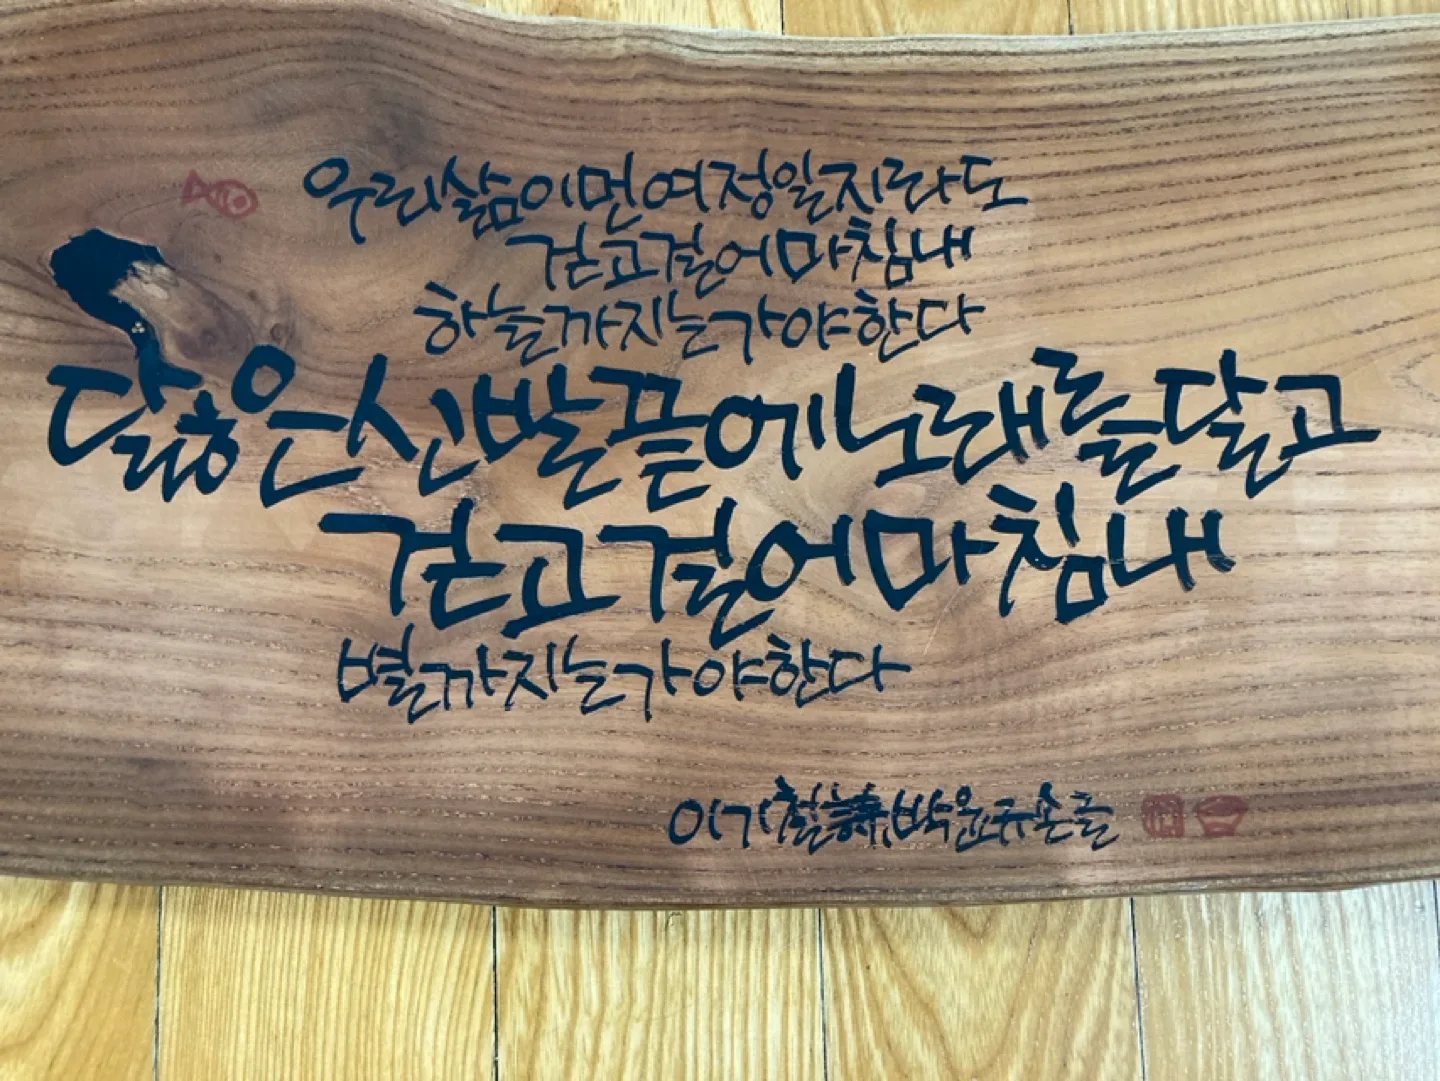 우리 삶이 먼 여정일지라도
걷고 걸어 마침내
하늘까지는 가야 한다
닳은 신발 끝에 노래를 달고
걷고 걸어 마침내
별까지는 가야 한다
이기철 詩, 박윤규 손글